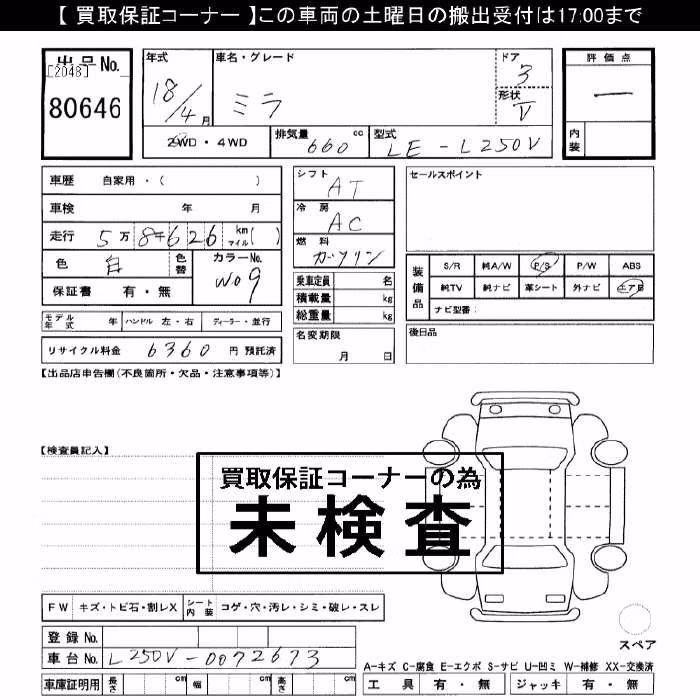 【 買取保証コーナー 】この車両の土曜日の搬出受付は17:00まで
出品No.
[2048]
80646
年式
18/4月
車名・グレード
ミラ
ドア
3
形状
V
評価点
一
内装
2WD・4WD
排気量 660 cc
型式 LE-L250V
車歴 自家用・( )
車検 年 月
走行 5万8626 km マイル( )
色 白 色替
カラーNo. W09
保証書 有・無
モデル年式 年 ハンドル 左・右 ディーラー・並行
リサイクル料金 6360 円 預託済
シフト
AT
冷房
AC
燃料
ガソリン
乗車定員 名
積載量 kg
総重量 kg
名変期限
月 日
セールスポイント
装備品
S/R 純A/W P/S P/W ABS
純TV 純ナビ 革シート 外ナビ エアB
ナビ型番:
後日品
【出品店申告欄(不良箇所・欠品・注意事項等)】
【検査員記入】
買取保証コーナーの為
未検査
FW キズ・トビ石・割レX シート内装 コゲ・穴・汚レ・シミ・破レ・スレ
スペア
登録No.
車台No. L250V-0072673
A-キズ C-腐食 E-エクボ S-サビ U-凹ミ W-補修 XX-交換済
車庫証明用 長さ cm 幅 cm 高さ cm
工具 有・無 ジャッキ 有・無